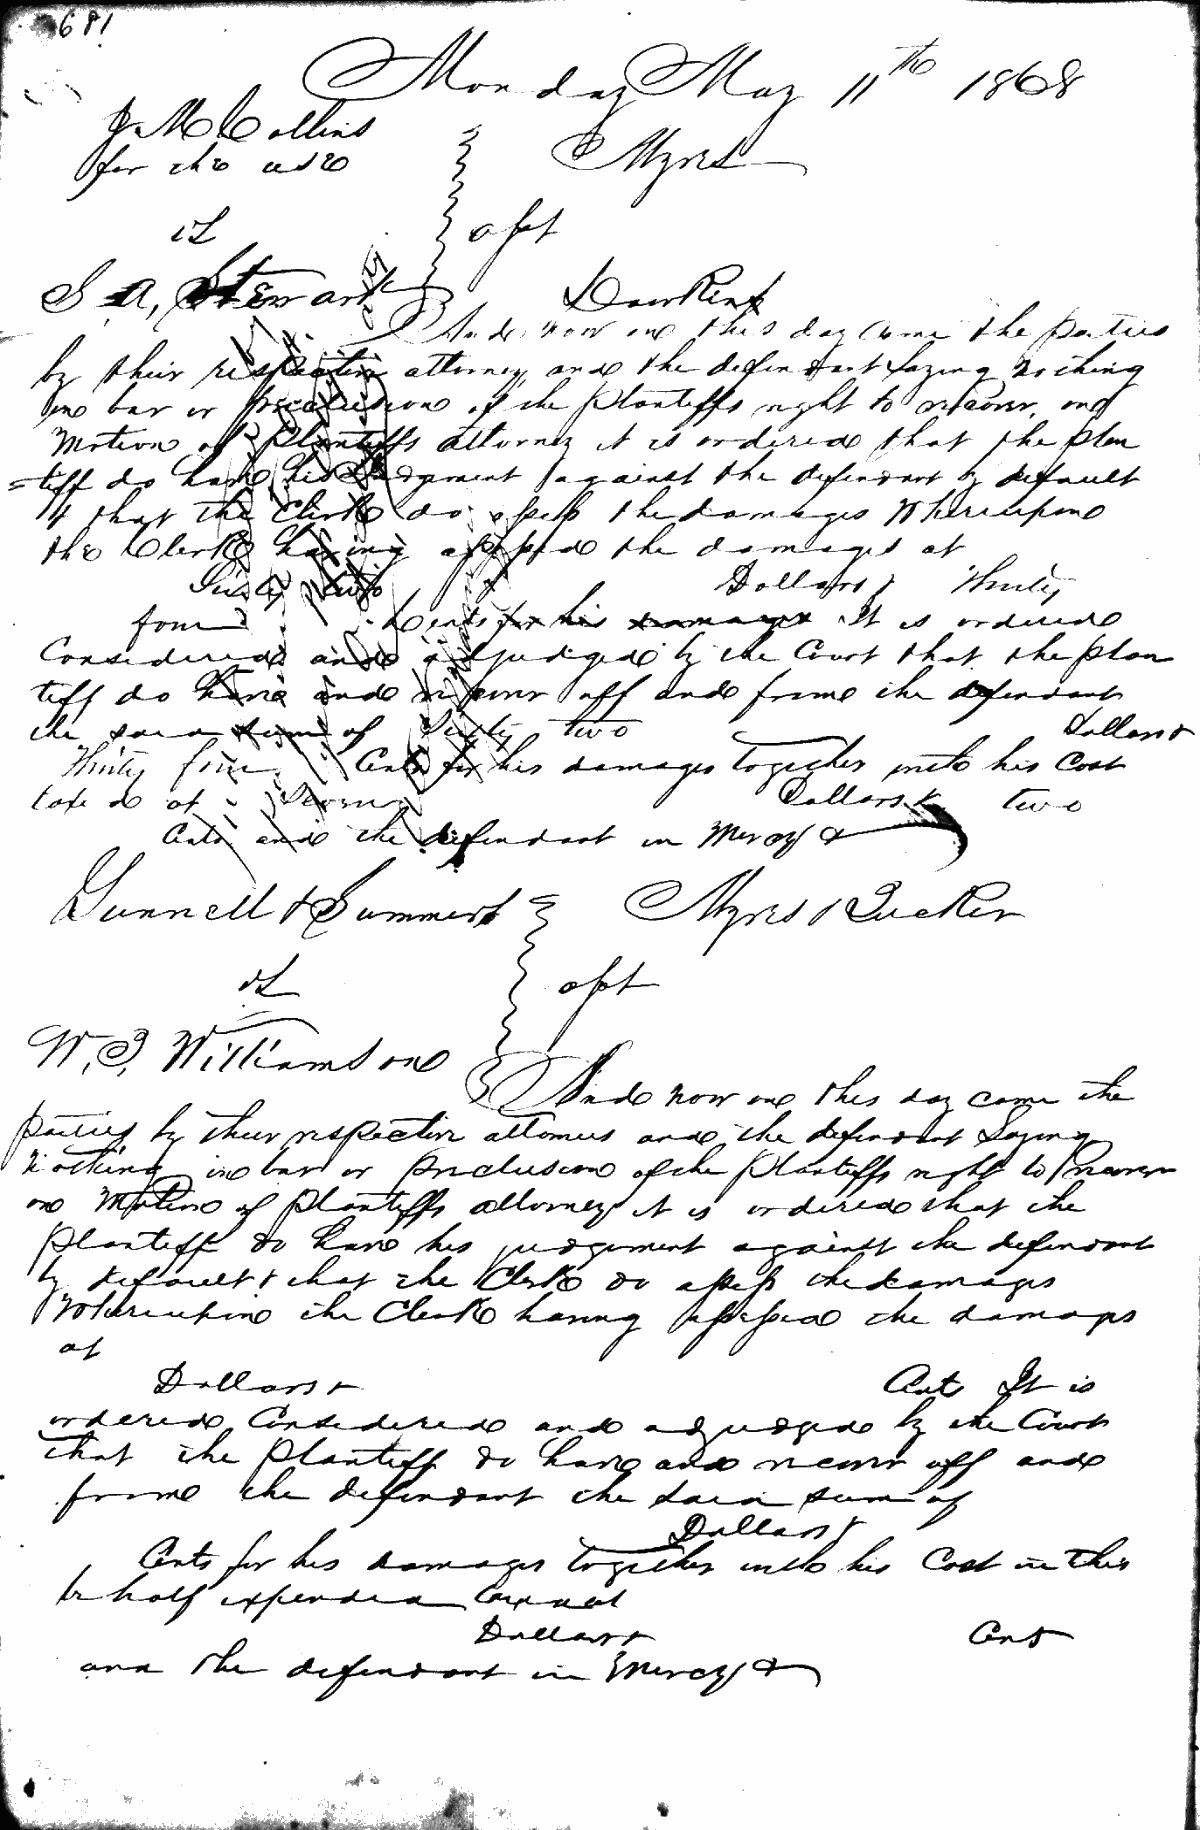 681
Monday May 11th 1868
J. M. Collins
for the use
Myres
vs
apt
S. A. Stewart
Dawkins
And now on this day came the parties
by their respective attorney and the defendant saying nothing
in bar or preclusion of the Plantiffs right to recover, on
Motion of Plantiffs attorney it is ordered that the plan
=tiff do have his Judgment against the defendant by default
& that the Clerk do assess the damages Whereupon
the Clerk having assessed the damages at
Sixty two Dollars & Thirty
four Cents for his damages It is ordered
Considered and adjudged by the Court that the plan
tiff do have and recover off and from the defendant
the said sum of Sixty two Dollars &
Thirty four Cents for his damages together with his Cost
taxed at Seven Dollars & two
Cents and the defendant in Mercy &
Gunnell & Summers
Myres & Tucker
vs
apt
W. J. Williamson
And now on this day came the
parties by their respective attornies and the defendant Saying
nothing in bar or preclusion of the Plantiffs right to recover
on Motion of Plantiffs attorney it is ordered that the
Plantiff do have his judgement against the defendant
by default & that the Clerk do assess the damages
Whereupon the Clerk having assessed the damages
at
Dollars & Cents It is
ordered Considered and adjudged by the Court
that the Plantiff do have and recover off and
from the defendant the said sum of
Dollars &
Cents for his damages together with his Cost in this
behalf expended taxed at
Dollars & Cents
and the defendant in Mercy &